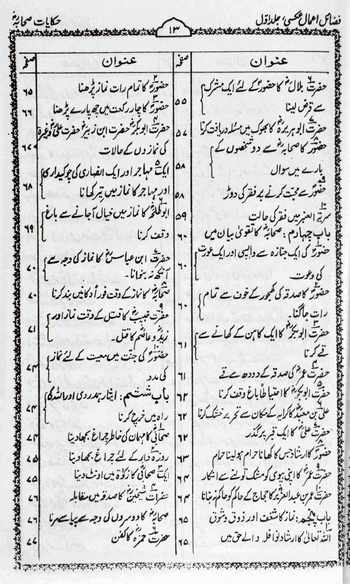 فضائل اعمال عکسی، جلد اول
۱۳
حکایات صحابہؓ
عنوان
صفحہ
حضرت بلالؓ کا حضورؐ کے لئے ایک مشرک
سے قرض لینا
۵۵
حضرت ابوہریرہؓ کا بھوک میں مسئلہ دریافت کرنا
۵۷
حضورؐ کا صحابہؓ سے دو شخصوں کے
بارے میں سوال
۵۸
حضورؐ سے محبت کرنے پر فقر کی دوڑ
۵۸
سریۃ العنبر میں فقر کی حالت
۵۹
باب چہارم: صحابہؓ کا تقویٰ بیان میں
۶۰
حضورؐ کی ایک جنازہ سے واپسی اور ایک عورت
کی دعوت
۶۰
حضورؐ کا صدقہ کی کھجور کے خوف سے تمام
رات جاگنا۔
حضرت ابوبکرؓ کا ایک کاہن کے کھانے سے
قے کرنا
۶۱
حضرت عمرؓ کی صدقہ کے دودھ سے قے
۶۱
حضرت ابوبکرؓ کا احتیاطاً باغ وقف کرنا
۶۲
علی بن معبدؒ کا کرایہ کے مکان سے تحریر خشک کرنا
۶۲
حضرت علیؓ کا ایک قبر پر گذر
۶۲
حضورؐ کا ارشاد جس کا کھانا حرام ہو پہننا حرام
۶۳
حضرت عمرؓ کا اپنی بیوی کو مشک تولنے سے انکار
۶۴
حضرت عمر بن عبدالعزیزؒ کا حجاج کے حاکم کو حاکم نہ بنانا
۶۴
باب پنجم: نماز کا شغف اور ذوق و شوق
۶۵
اللہ تعالیٰ کا ارشاد نوافل والے کے حق میں
عنوان
صفحہ
حضورؐ کا تمام رات نماز پڑھنا
۶۵
حضورؐ کا چار رکعت میں چھ پارے پڑھنا
۶۶
حضرت ابوبکرؓ حضرت ابن زبیرؓ حضرت علیؓ وغیرہ
کی نمازوں کے حالات
۶۷
ایک مہاجر اور ایک انصاری کی چوکیداری
اور مہاجر کا نماز میں تیر کھانا
۶۸
ابوطلحہؓ کا نماز میں خیال آجانے سے باغ
وقف کرنا
۶۹
حضرت ابن عباسؓ کا نماز کی وجہ سے
آنکھ نہ بنوانا۔
۷۰
صحابہؓ کا نماز کے وقت فوراً دکانیں بند کرنا
۷۰
حضرت خبیبؓ کا قتل کے وقت نماز اور
زیدؓ و عاصمؓ کا قتل۔
۷۱
حضورؐ کی جنت میں معیت کے لئے نماز
کی مدد
۷۴
باب ششم: ایثار ہمدردی اور اللہ کی
راہ میں خرچ کرنا
۷۴
صحابیؓ کا مہمان کی خاطر چراغ بجھا دینا
۷۴
روزہ دار کے لئے چراغ بجھا دینا
۷۵
ایک صحابیؓ کا زکوٰۃ میں اونٹ دینا
۷۵
حضرات شیخینؓ کا صدقہ میں مقابلہ
۷۶
صحابہؓ کا دوسروں کی وجہ سے پیاسے مرنا
۷۶
حضرت حمزہؓ کا کفن
۷۷